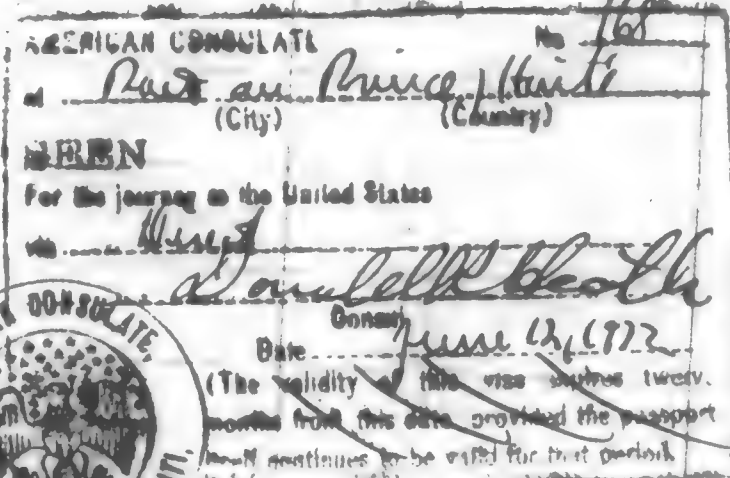 AMERICAN CONSULATE No 168
at Port au Prince, Haiti
(City) (Country)
SEEN
For the journey to the United States
via Direct
Donald R. Heath
Consul
Date June 12, 1932
(The validity of this visa expires twelve
months from this date provided the passport
itself continues to be valid for that period
CONSULATE,